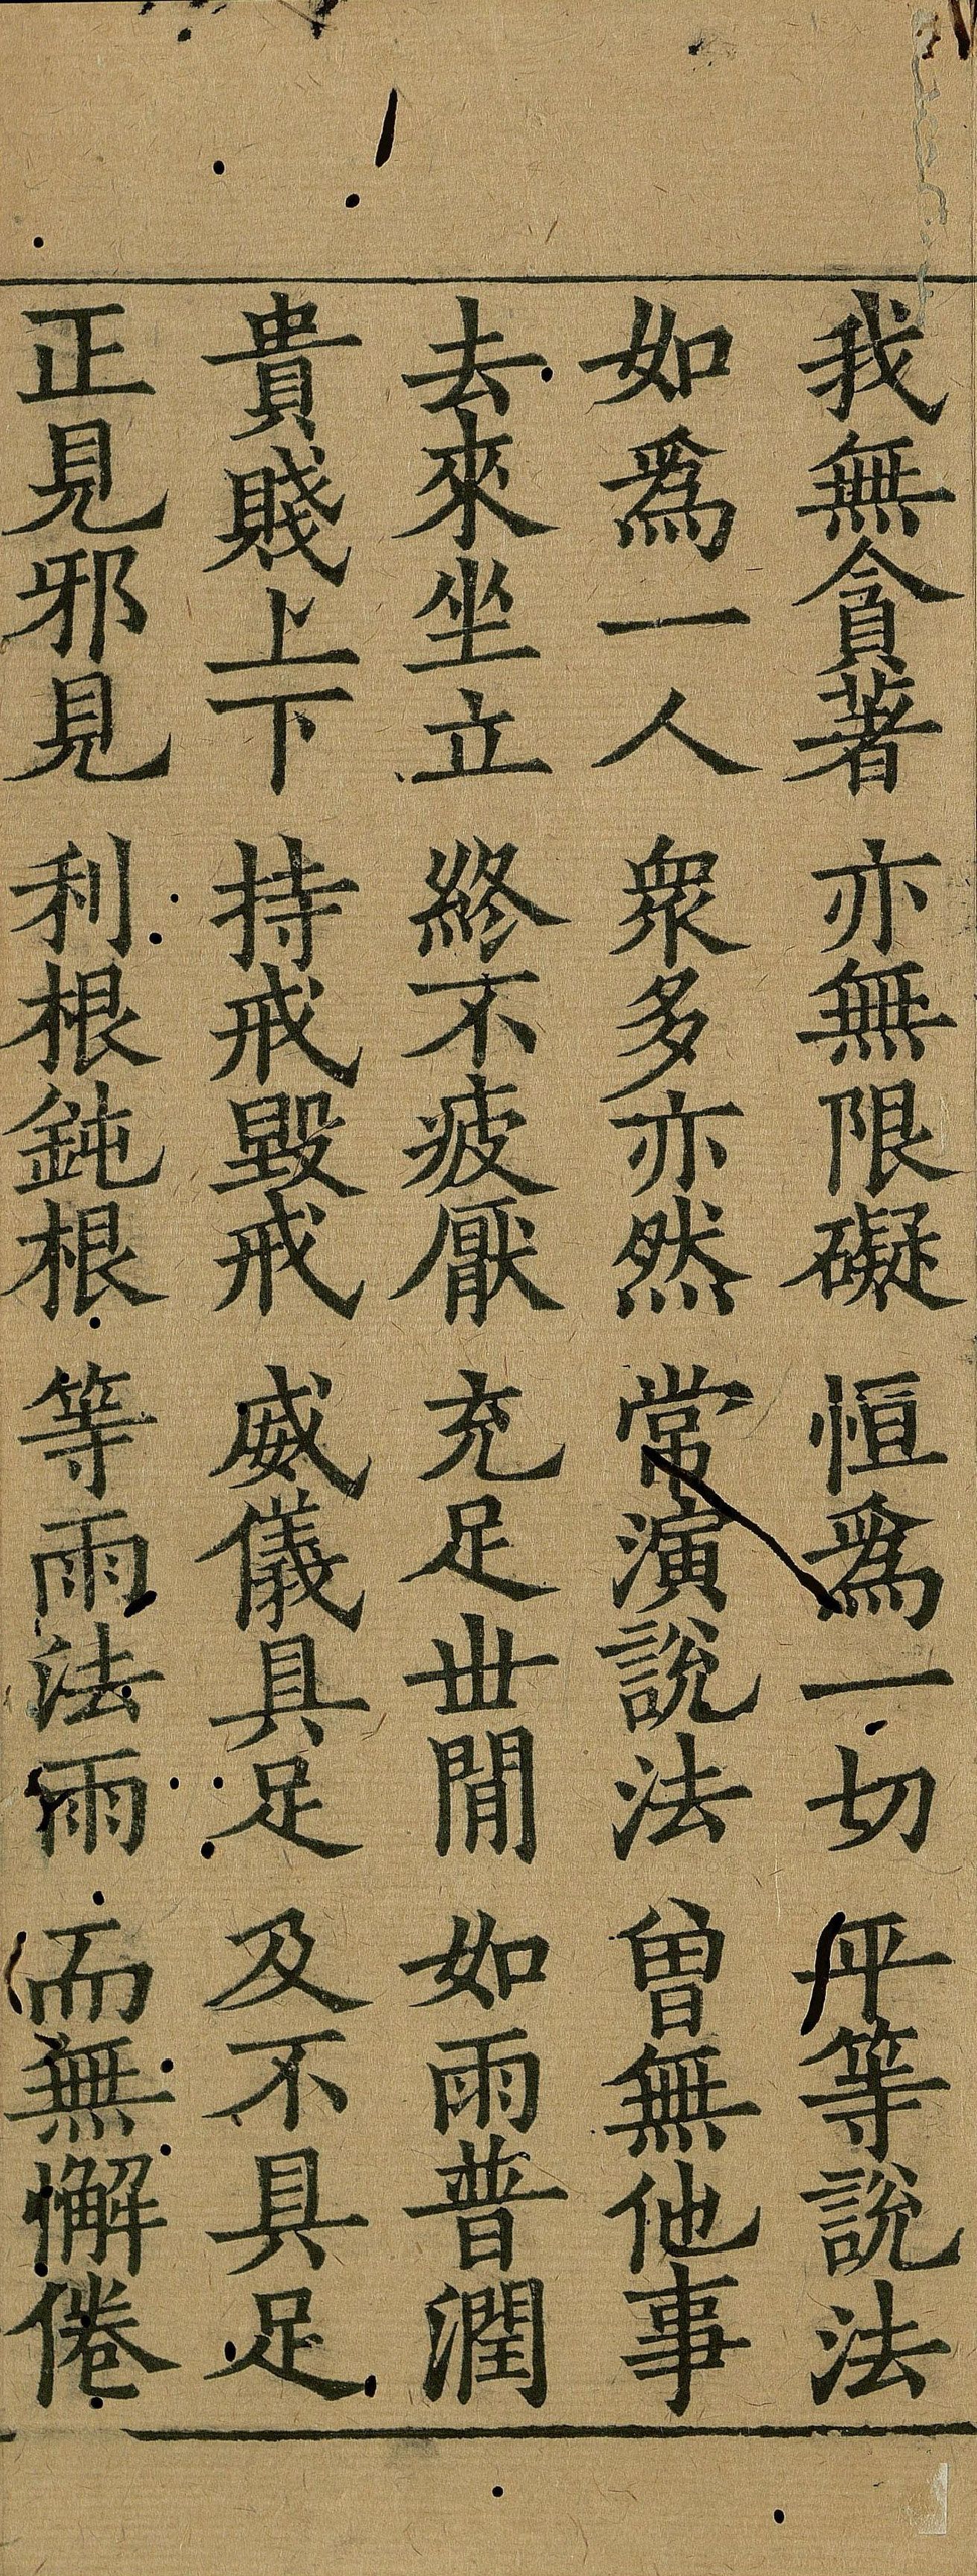 我無貪著 亦無限礙 恒爲一切 平等說法
如爲一人 衆多亦然 常演說法 曾無他事
去來坐立 終不疲厭 充足世閒 如雨普潤
貴賤上下 持戒毀戒 威儀具足 及不具足
正見邪見 利根鈍根 等雨法雨 而無懈倦